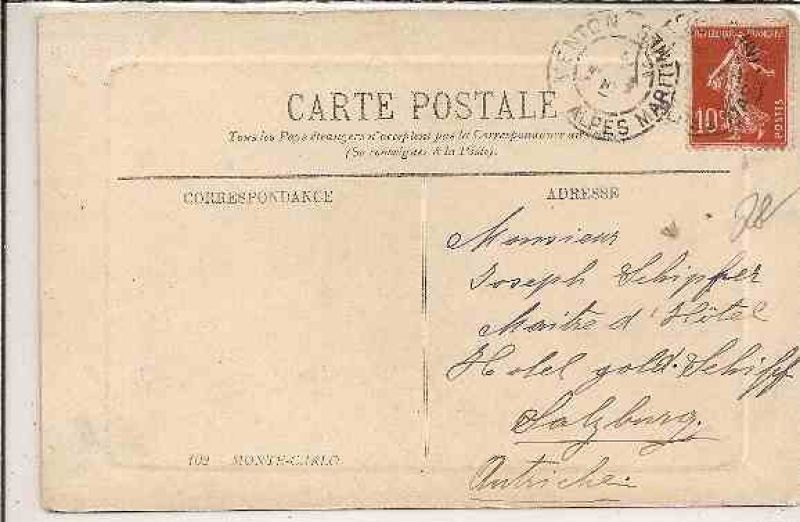 MENTON
ALPES MARITIMES
RÉPUBLIQUE FRANÇAISE
10c
POSTES
CARTE POSTALE
Tous les Pays étrangers n'acceptent pas la Correspondance au
(Se renseigner à la Poste).
CORRESPONDANCE
ADRESSE
Monsieur
Joseph Schipfer
Maitre d'Hôtel
Hotel gold. Schiff
Salzburg.
Autriche.
102 - MONTE-CARLO